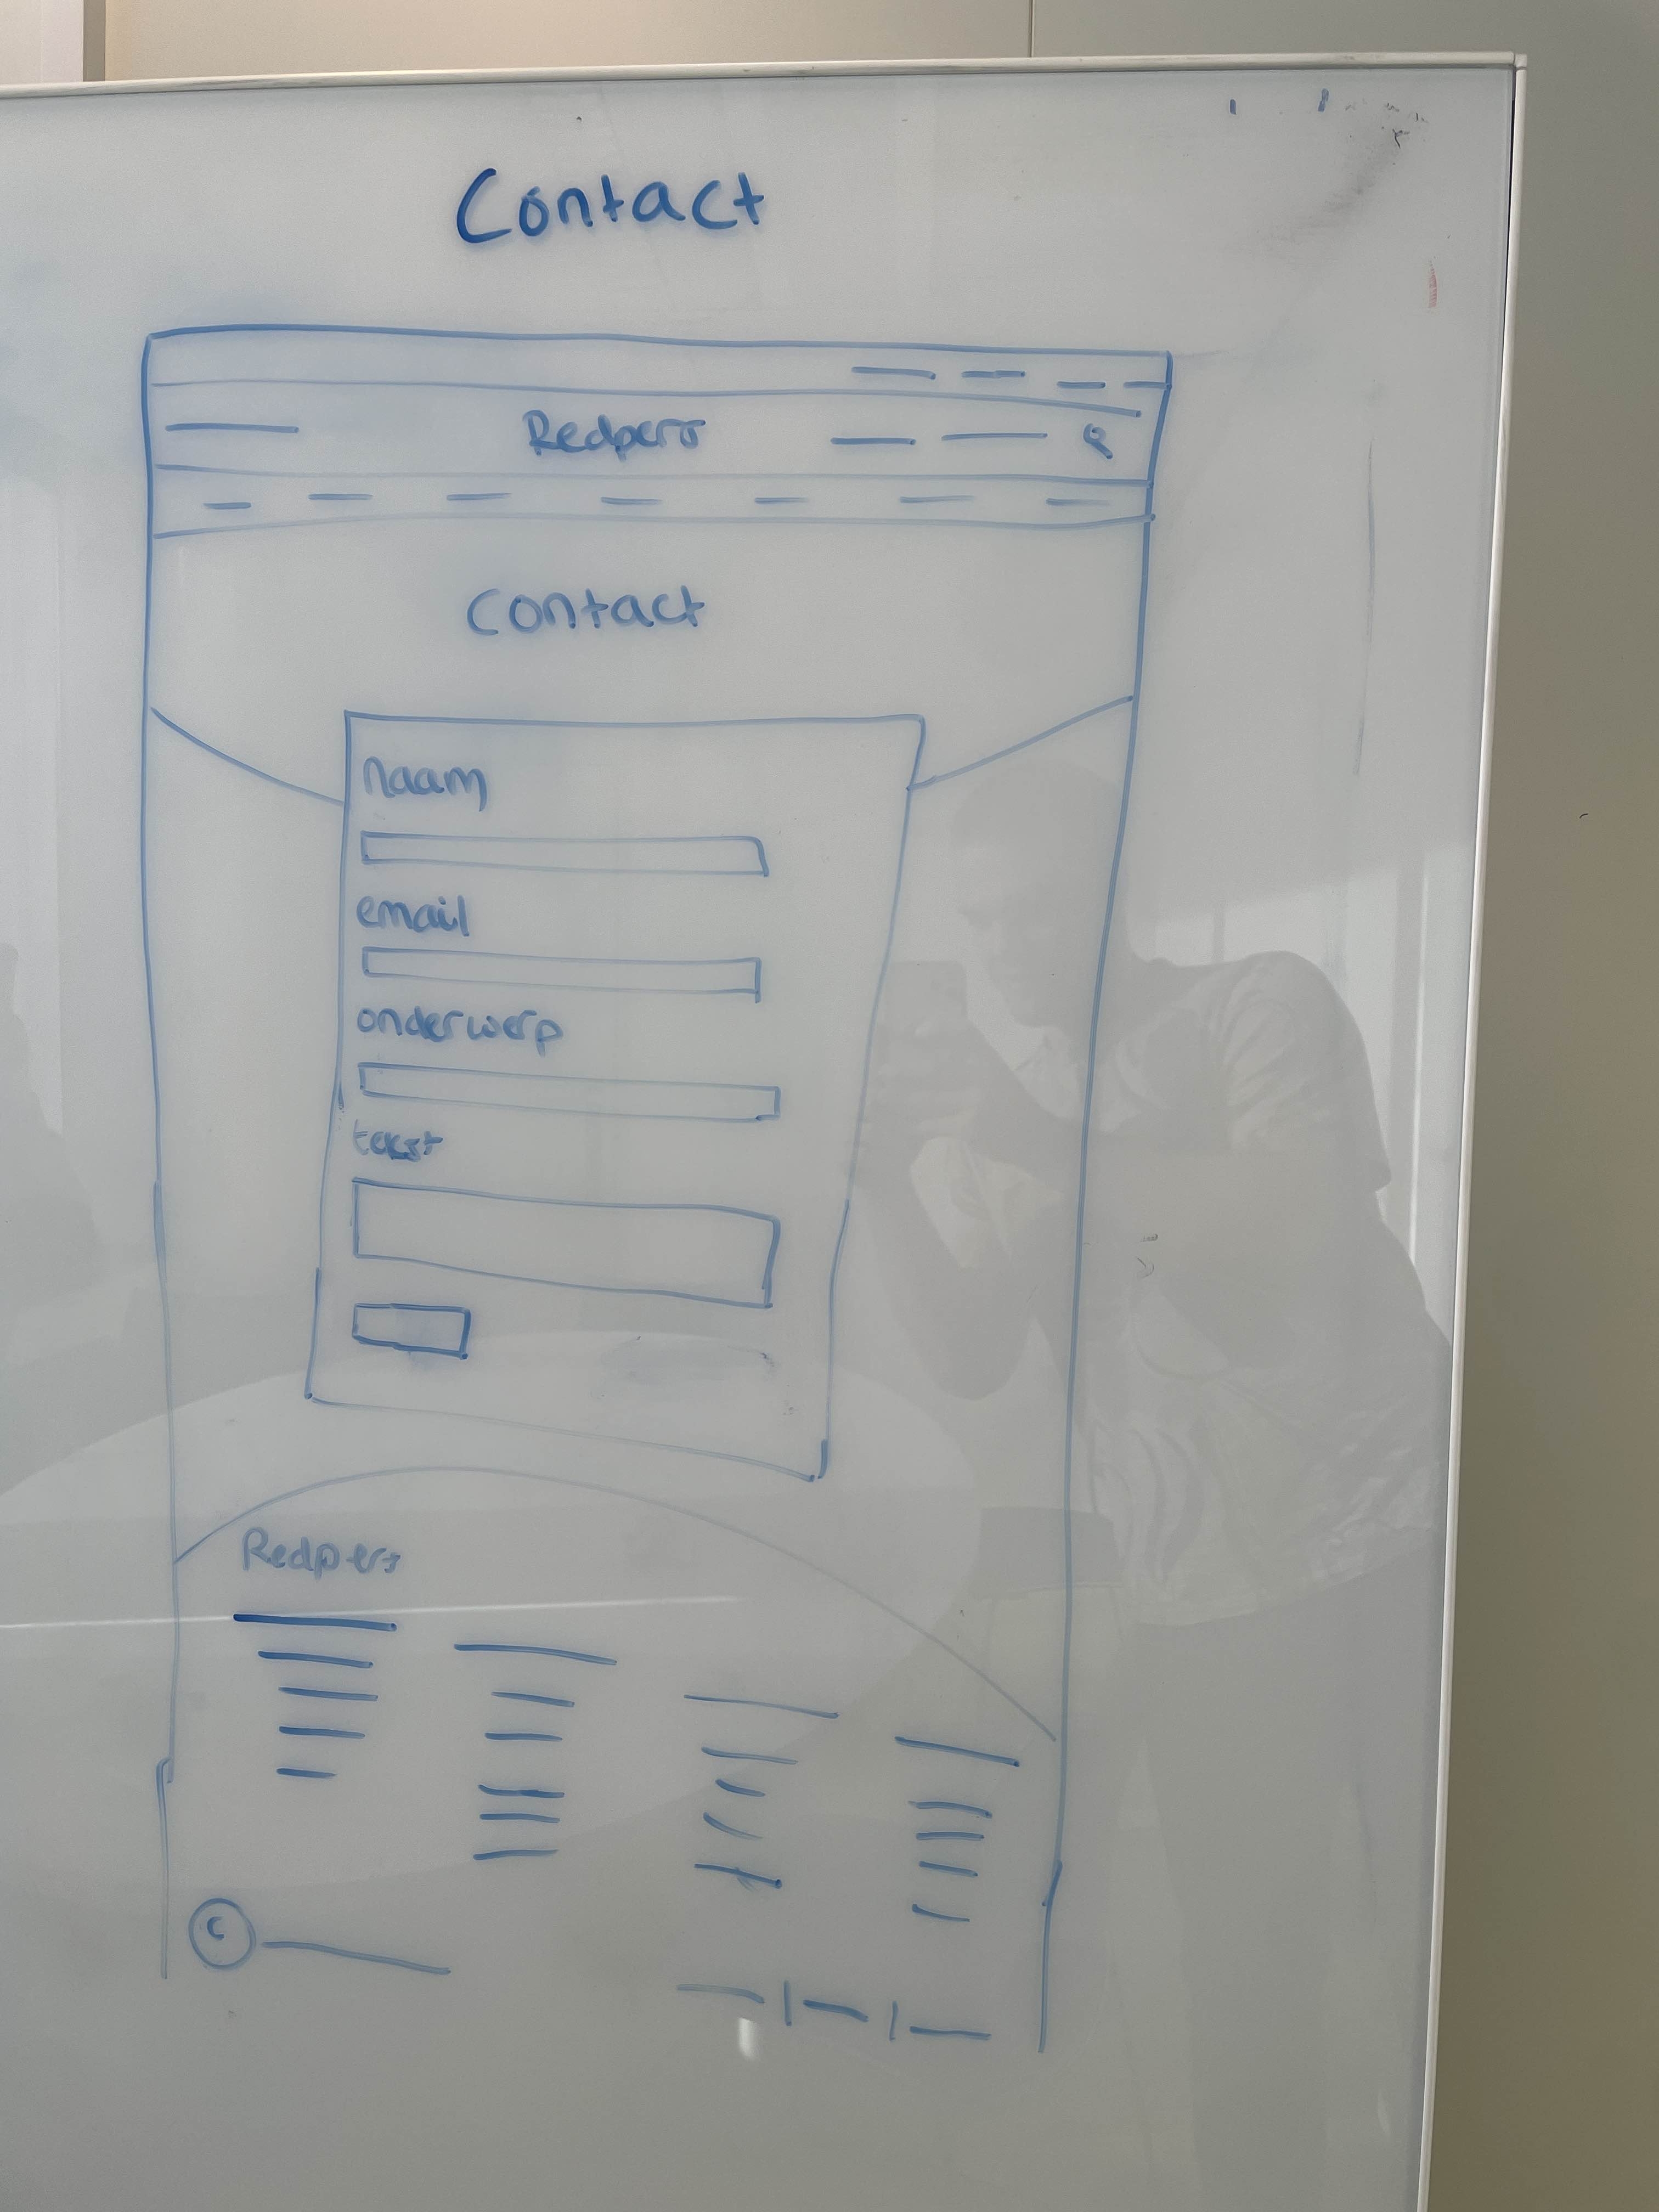 Contact
Redpers
Contact
naam
email
onderwerp
tekst
Redpers
C